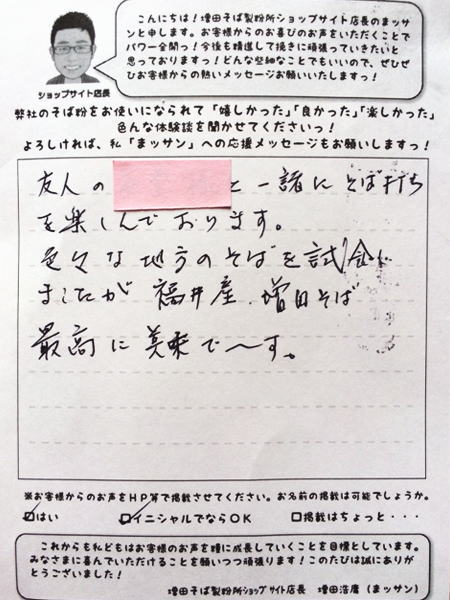 こんにちは！増田そば製粉所ショップサイト店長のまッサ
ンと申します。お客様からのお喜びのお声をいただくことで
パワー全開っ！今後も精進して挽きに頑張っていきたいと
思っておりますっ！どんな些細なことでもいいので、ぜひぜ
ひお客様からの熱いメッセージお願いいたしますっ！
ショップサイト店長
弊社のそば粉をお使いになられて「嬉しかった」「良かった」「楽しかった」
色んな体験談を聞かせてくださいっ！
よろしければ、私「まッサン」への応援メッセージもお願いしますっ！
友人の と一緒にそば打ち
を楽しんでおります。
色々な地方のそばを試食し
ましたが 福井産、増田そば
最高に美味で〜す。
※お客様からのお声をHP等で掲載させてください。お名前の掲載は可能でしょうか。
☑はい ☑イニシャルでならOK □掲載はちょっと・・・
これからも私どもはお客様のお声を糧に成長していくことを目標としています。
みなさまに喜んでいただけることを願いつつ頑張ります！このたびは誠にありが
とうございました！
増田そば製粉所ショップサイト店長 増田浩庸（まッサン）